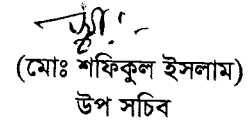 (মোঃ শফিকুল ইসলাম)
উপ সচিব